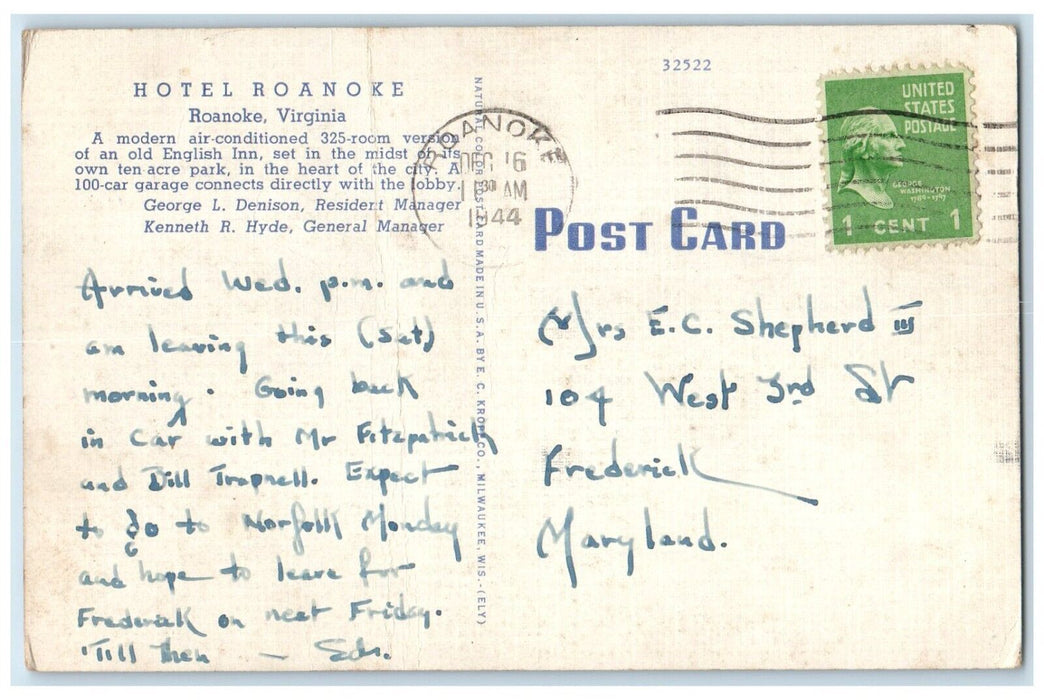 HOTEL ROANOKE
Roanoke, Virginia
A modern air-conditioned 325-room version
of an old English Inn, set in the midst of its
own ten-acre park, in the heart of the city. A
100-car garage connects directly with the lobby.
George L. Denison, Resident Manager
Kenneth R. Hyde, General Manager
Arrived Wed. p.m. and
am leaving this (Sat)
morning. Going back
in car with Mr Fitzpatrick
and Bill Trapnell. Expect
to go to Norfolk Monday
and hope to leave for
Frederick on next Friday.
'Till then —
NATURAL COLOR POST CARD MADE IN U.S.A. BY E. C. KROPP CO., MILWAUKEE, WIS.-(ELY)
32522
ROANOKE
DEC 16
11 30 AM
1944
UNITED
STATES
POSTAGE
GEORGE
WASHINGTON
1789-1797
1 CENT 1
POST CARD
Mrs E.C. Shepherd III
104 West 3rd St
Frederick
Maryland.